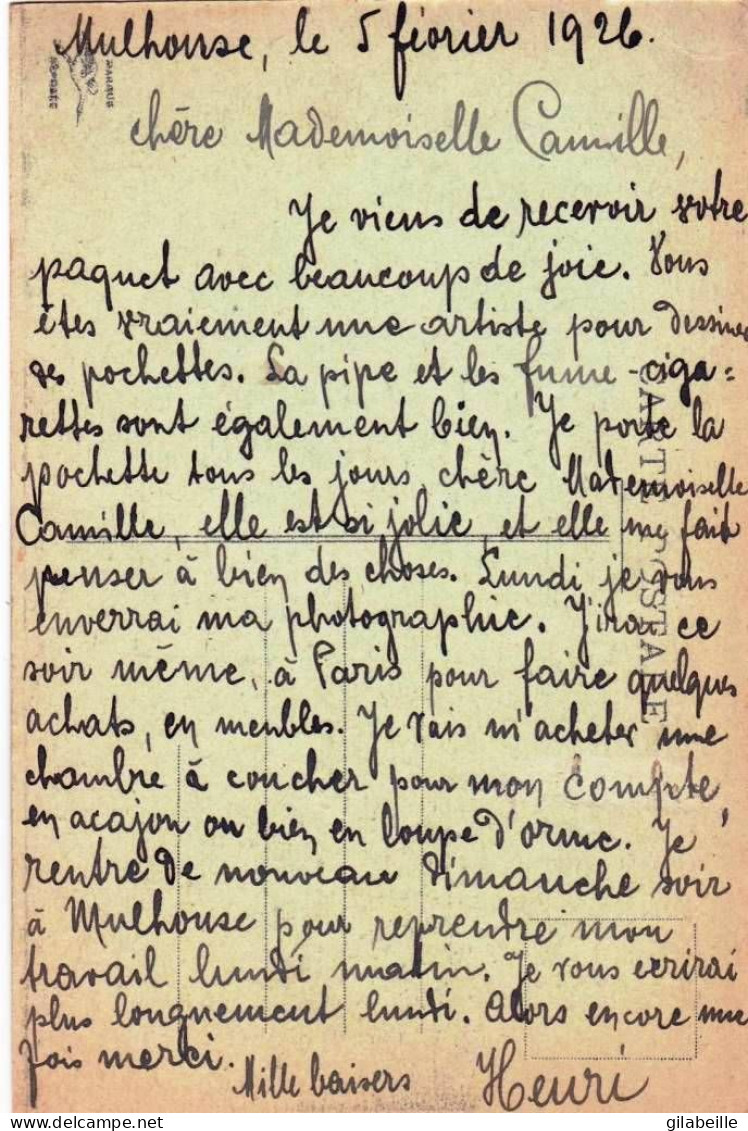 Mulhouse, le 5 février 1926.
chère Mademoiselle Camille,
Je viens de recevoir votre
paquet avec beaucoup de joie. Vous
êtes vraiement une artiste pour dessiner
des pochettes. La pipe et les fume-ciga=
rettes sont également bien. Je porte la
pochette tous les jours, chère Mademoiselle
Camille, elle est si jolie, et elle me fait
penser à bien des choses. Lundi je vous
enverrai ma photographie. J'irai ce
soir même, à Paris pour faire quelques
achats, en meubles. Je vais m'acheter une
chambre à coucher pour mon compte,
en acajou ou bien en loupe d'orme. Je
rentre de nouveau dimanche soir
à Mulhouse pour reprendre mon
travail lundi matin. Je vous ecrirai
plus longnement lundi. Alors encore une
fois merci.
Mille baisers Henri
CARTE POSTALE
gilabeille